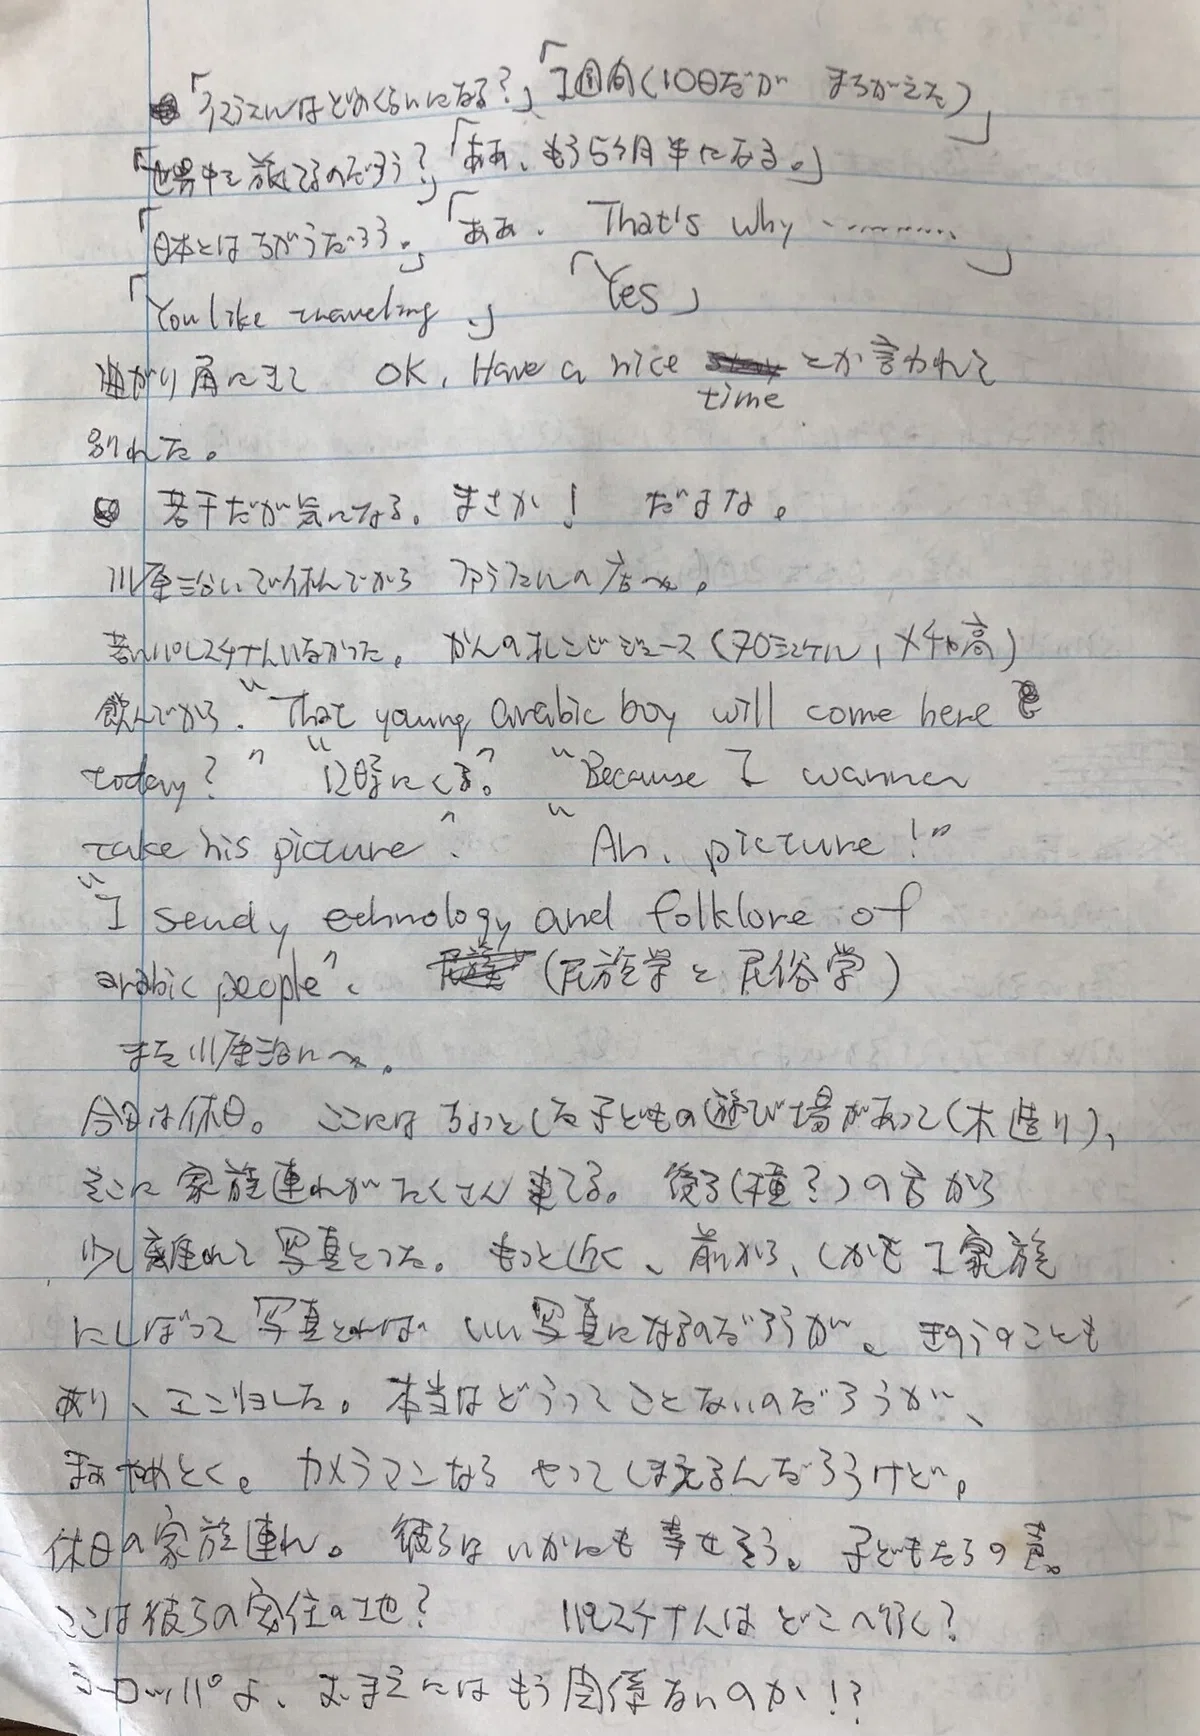 「イスラエルはどれくらいになる?」「1週間(10日だが まちがえた)」
「世界中を旅してるのだろう?」「ああ、もう5ヶ月半になる。」
「日本とはちがうだろう。」「ああ. That's why ‥‥‥‥‥」
「You like traveling.」 「Yes」
曲がり角にきて OK, Have a nice time とか言われて
別れた。
若干だが気になる。まさか! だよな。
川原沿いで休んでから ファラフェルの店へ。
若いパレスチナ人いなかった。かんのオレンジジュース(70シェケル,メチャ高)
飲んでから. "That young arabic boy will come here
today?" "12時にくる." "Because I wanna
take his picture". "Ah. picture!"
"I study ethnology and folklore of
arabic people". (民族学と民俗学)
また川原沿いへ。
今日は休日。ここにはちょっとした子どもの遊び場があって(木造り)、
そこに家族連れがたくさん来てる。後ろ(種?)の方から
少し離れて写真とった。もっと近く、前から、しかも1家族
にしぼって写真とれば いい写真になるのだろうが。きのうのことも
あり、エンリョした。本当はどうってことないのだろうが、
まあやめとく。カメラマンなら やってしまえるんだろうけど。
休日の家族連れ。彼らはいかにも幸せそう。子どもたちの声。
ここは彼らの安住の地? パレスチナ人はどこへ行く?
ヨーロッパよ、おまえにはもう関係ないのか!?